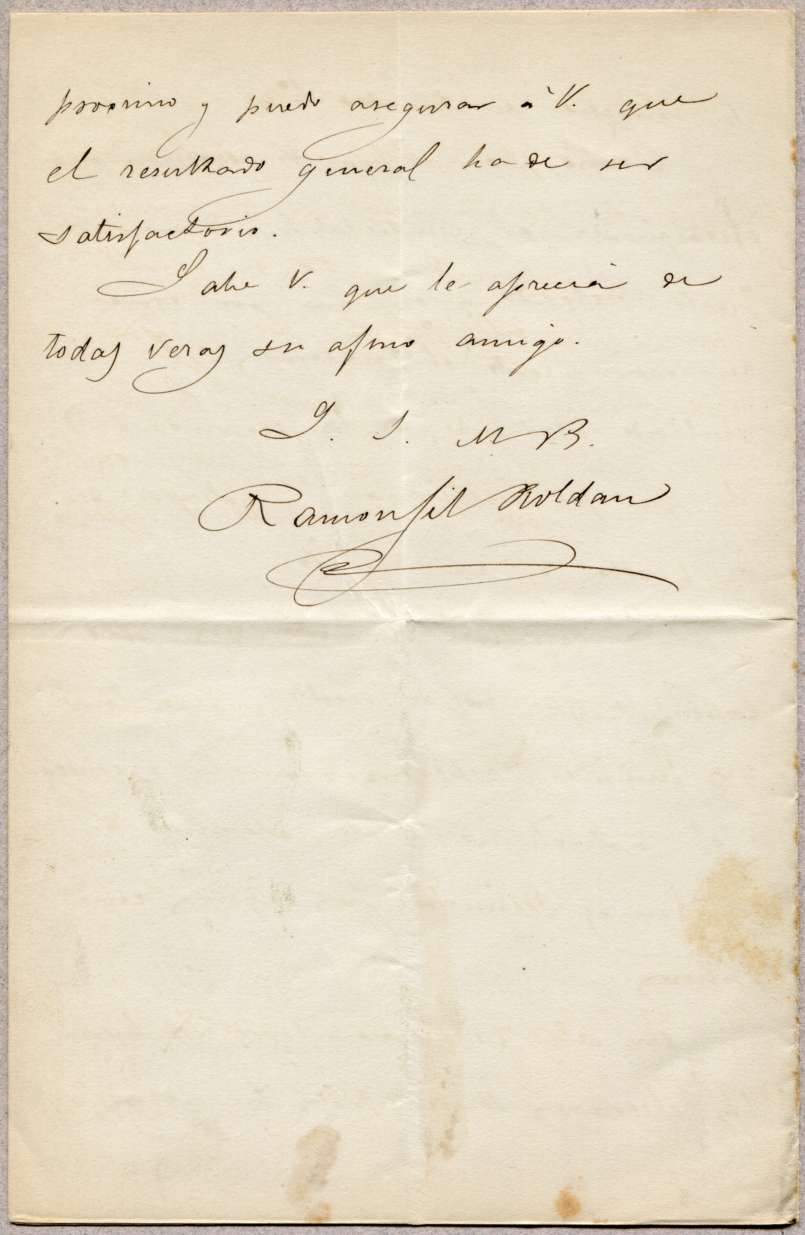 proximo y puedo asegurar á V. que
el resultado general ha de ser
satisfactorio.
Sabe V. que le aprecia de
todas veras su afmo amigo.
Q. S. M. B.
Ramon Gil Roldan